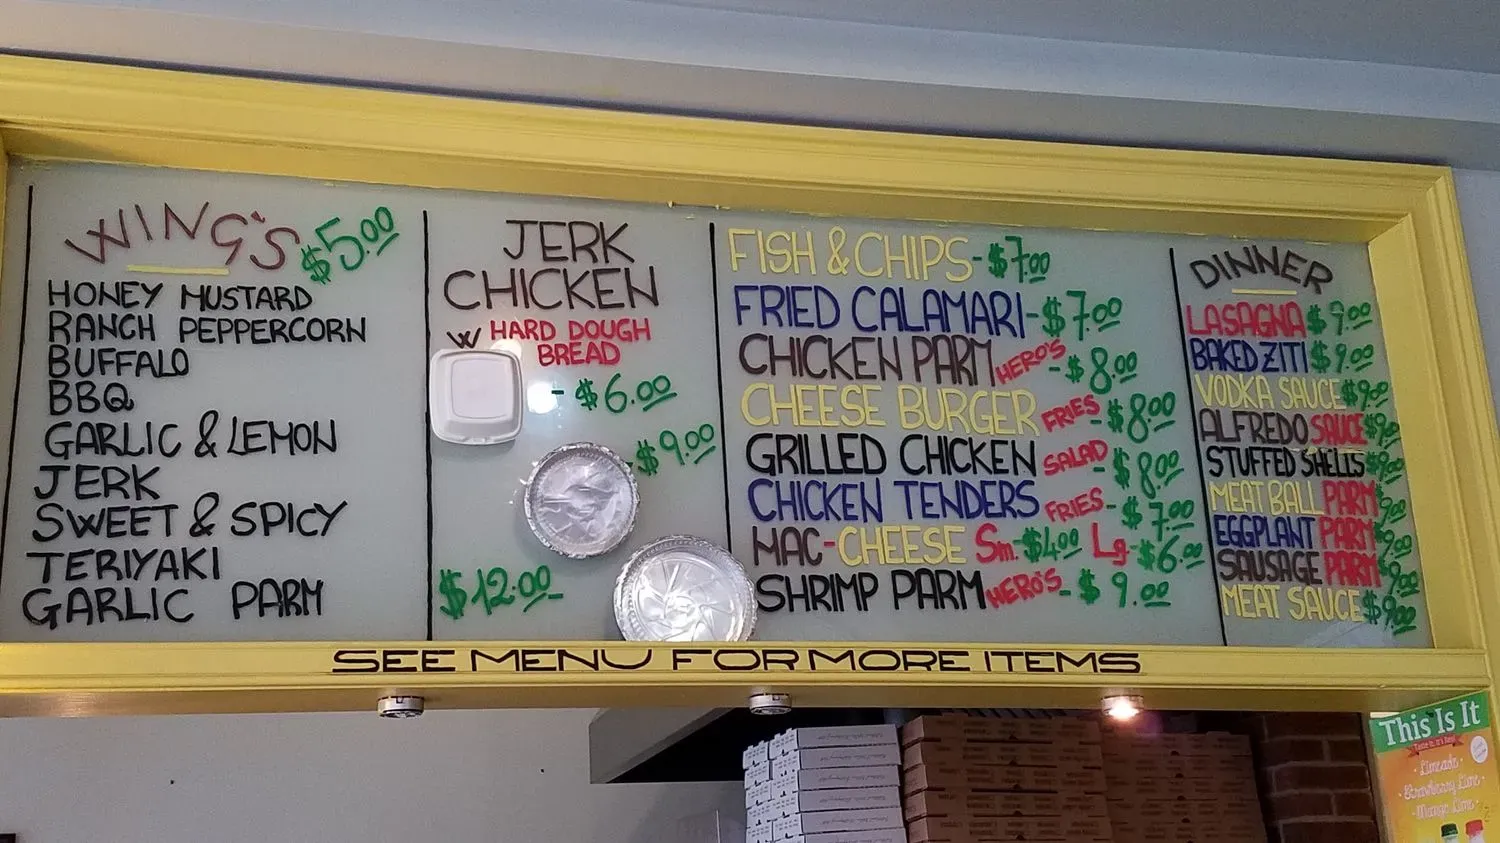 WING'S $5.00
HONEY MUSTARD
RANCH PEPPERCORN
BUFFALO
BBQ
GARLIC & LEMON
JERK
SWEET & SPICY
TERIYAKI
GARLIC PARM
JERK
CHICKEN
W HARD DOUGH
BREAD
- $6.00
$9.00
$12.00
FISH & CHIPS - $7.00
FRIED CALAMARI - $7.00
CHICKEN PARM HERO'S - $8.00
CHEESE BURGER FRIES - $8.00
GRILLED CHICKEN SALAD - $8.00
CHICKEN TENDERS FRIES - $7.00
MAC-CHEESE Sm. $4.00 Lg - $6.00
SHRIMP PARM HERO'S - $9.00
DINNER
LASAGNA $9.00
BAKED ZITI $9.00
VODKA SAUCE $9.00
ALFREDO SAUCE $9.00
STUFFED SHELLS $9.00
MEAT BALL PARM $9.00
EGGPLANT PARM $9.00
SAUSAGE PARM $9.00
MEAT SAUCE $9.00
SEE MENU FOR MORE ITEMS
This Is It
Limeade
Strawberry Lime
Mango Lime